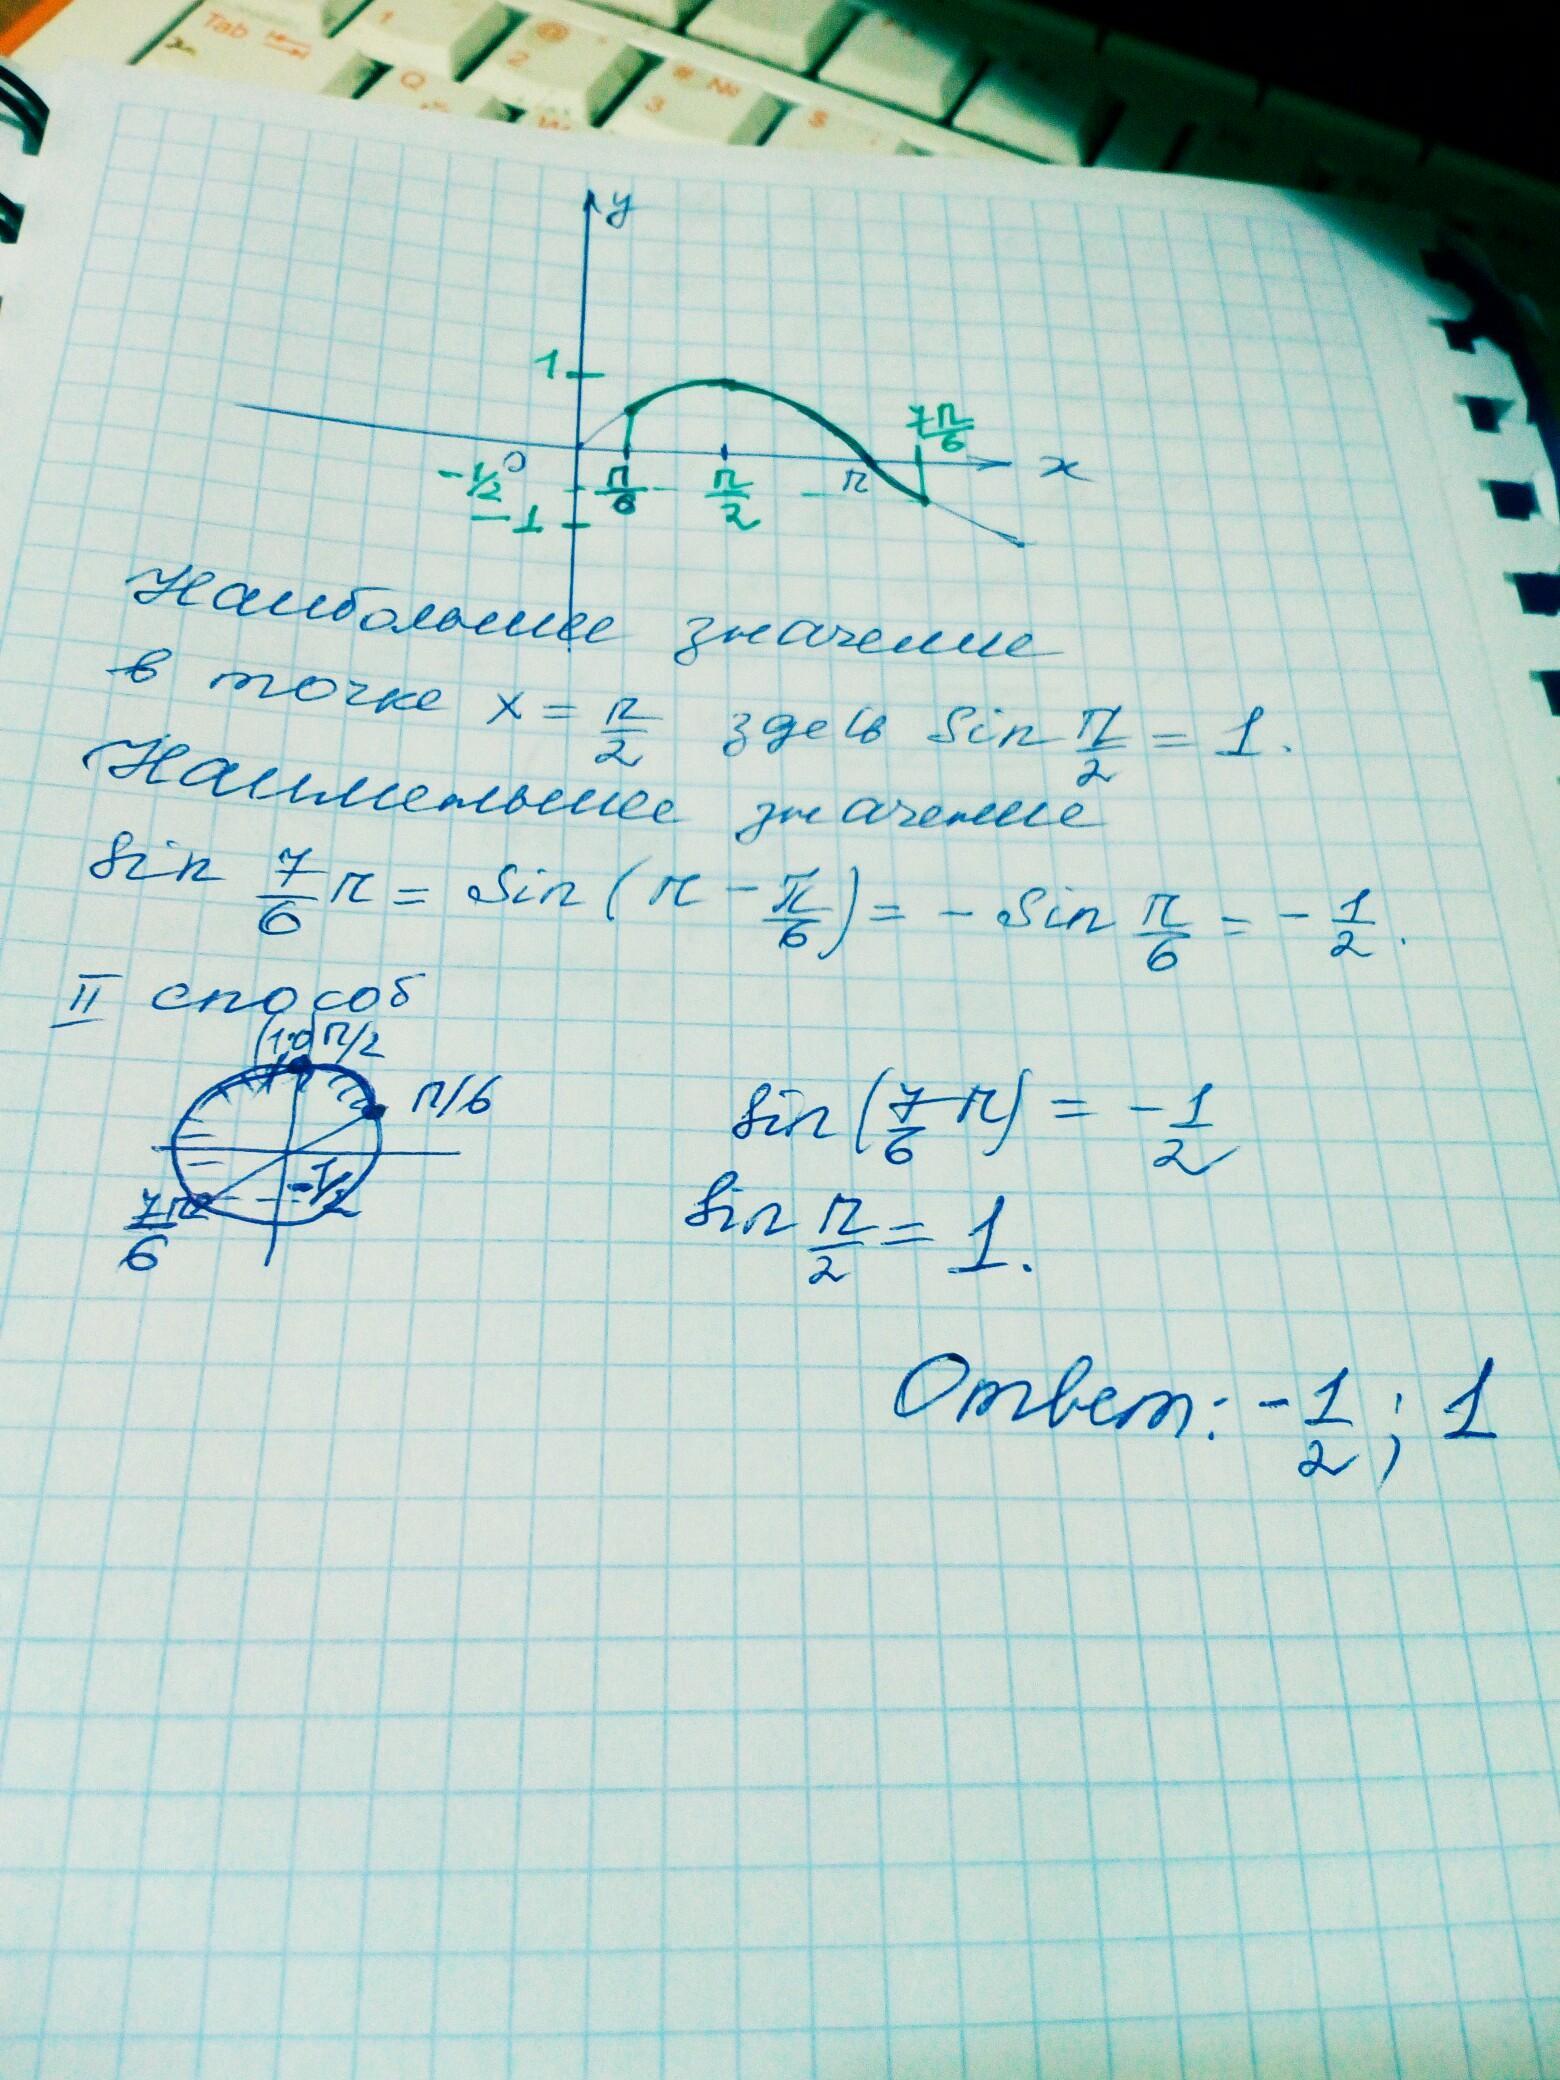 Tab
1
2
# №
3
$
Q
W
y
1
7π/6
0
x
-1/2
π/6
π/2
π
-1
Наибольшее значение
в точке x = π/2 здесь Sin π/2 = 1.
Наименьшее значение
Sin 7/6 π = Sin (π - π/6) = - Sin π/6 = - 1/2.
II способ
(1·0) π/2
π/6
-1/2
7π/6
Sin (7/6 π) = - 1/2
Sin π/2 = 1.
Ответ: - 1/2 ; 1